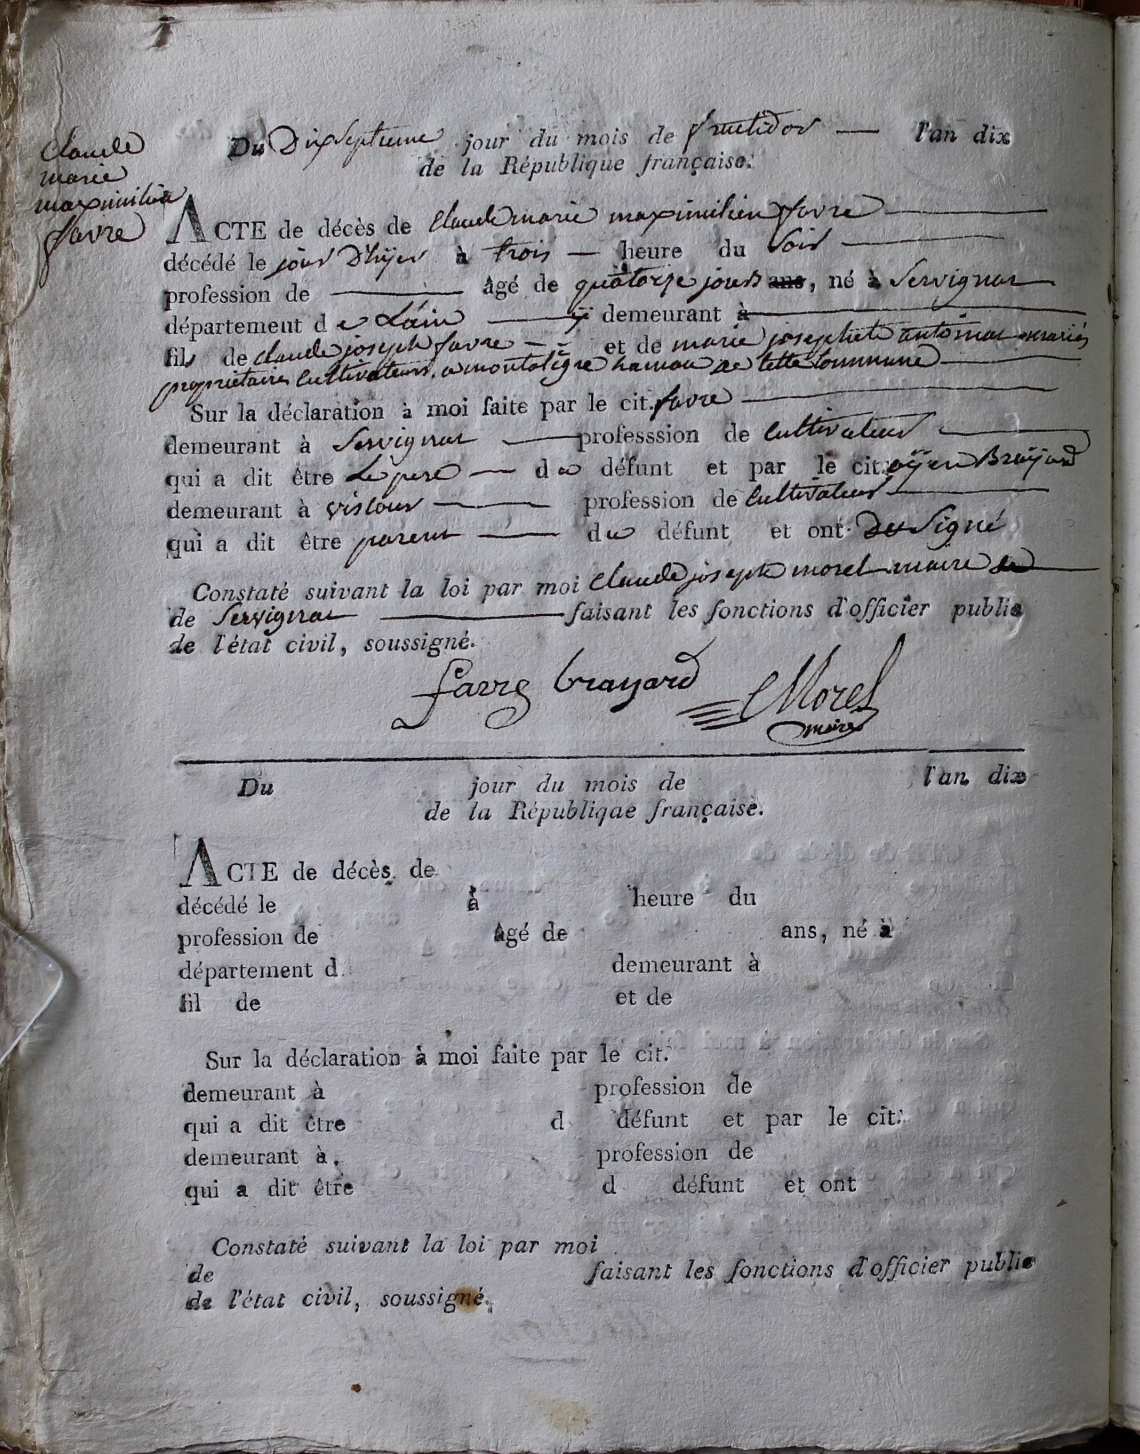 Claude
marie
maximilien
favre
Du Dix septieme jour du mois de fructidor l'an dix
de la République française.
ACTE de décès de Claude marie maximilien favre
décédé le jour D'hÿer à trois heure du Soir
profession de âgé de quatorze jours ans, né à Servignat
département de L'ain demeurant à
fils de claude joseph favre et de marie josephete antoinat mariés
propriétaires Cultivateurs a montaligre hamau de cette Commune
Sur la déclaration à moi faite par le cit. favre
demeurant à Servignat professsion de Cultivateur
qui a dit être Le pere du défunt et par le cit. Brayard
demeurant à profession de Cultivateur
qui a dit être parent du défunt et ont Signé
Constaté suivant la loi par moi Claude joseph morel maire de
de Servignat faisant les fonctions d'officier public
de l'état civil, soussigné.
favre brayard Morel
maire
Du jour du mois de l'an dix
de la Républiqae française.
ACTE de décès de
décédé le à heure du
profession de âgé de ans, né à
département d demeurant à
fil de et de
Sur la déclaration à moi faite par le cit.
demeurant à profession de
qui a dit être d défunt et par le cit.
demeurant à profession de
qui a dit être d défunt et ont
Constaté suivant la loi par moi
de faisant les fonctions d'officier public
de l'état civil, soussigné.